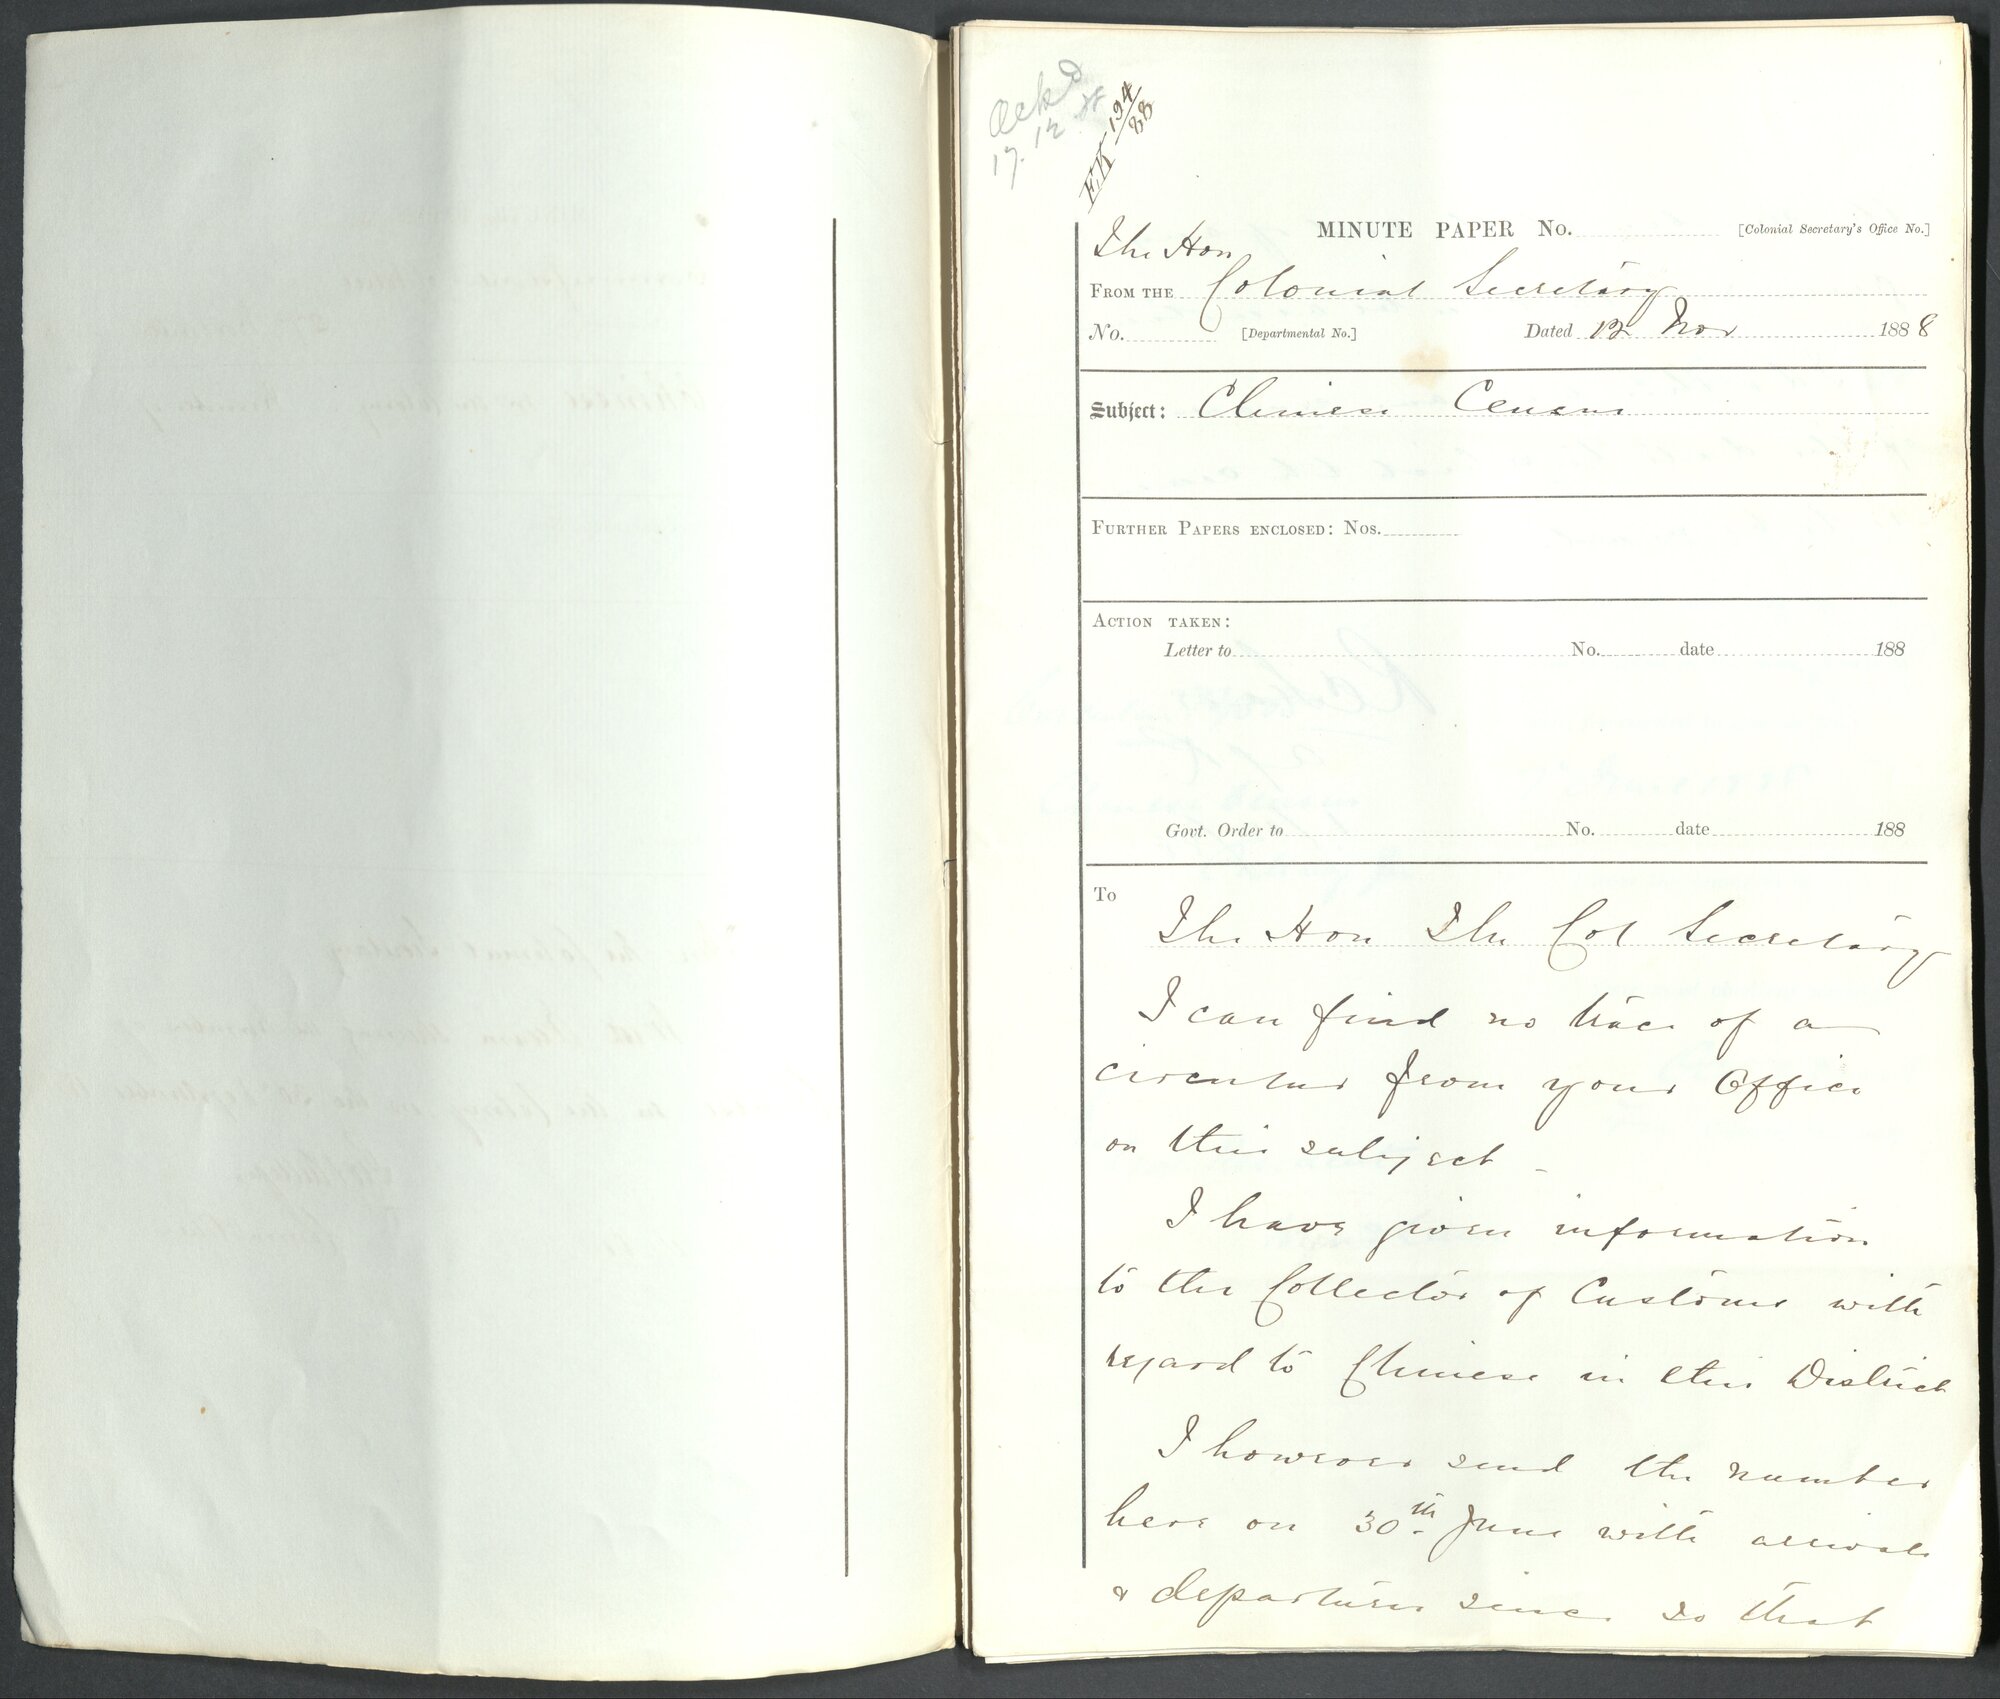 Ackd
17.12.88
EK 194/88
MINUTE PAPER No. [Colonial Secretary's Office No.]
The Hon
FROM THE Colonial Secretary
No. [Departmental No.] Dated 12 Nov 1888
Subject: Chinese Census
FURTHER PAPERS ENCLOSED: Nos.
ACTION TAKEN:
Letter to No. date 188
Govt. Order to No. date 188
To
The Hon The Col Secretary
I can find no trace of a
circular from your Office
on this subject -
I have given information
to the Collector of Customs with
regard to Chinese in this District
I however send the number
here on 30th June with arrivals
& departures since so that